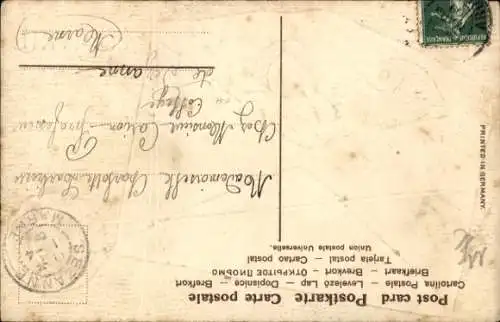 Post card Postkarte Carte postale
Cartolina Postale — Levelezö Lap — Dopisnice — Brefkort
Briefkaart — Brevkort — ОТКРЫТОЕ ПИСЬМО
Tarjeta postal — Cartao postal
Union postale Universelle.
Mademoiselle Charlotte
Chez Monsieur Carion Professeur
au Collège
de Sézanne
(Marne)
SEZANNE
MARNE
PRINTED IN GERMANY.